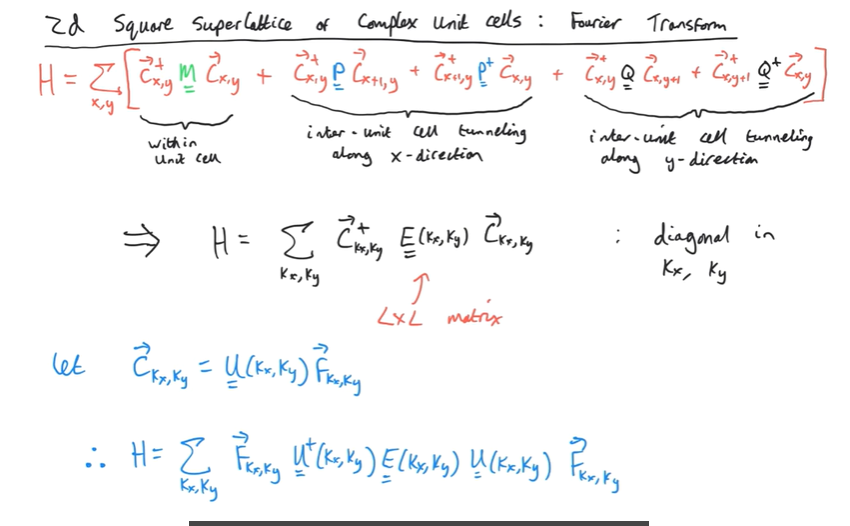 2d Square Superlattice of Complex Unit cells : Fourier Transform
H = ∑_{x,y} [ \vec{C}^†_{x,y} \underline{\underline{M}} \vec{C}_{x,y} + \vec{C}^†_{x,y} \underline{\underline{P}} \vec{C}_{x+1,y} + \vec{C}^†_{x+1,y} \underline{\underline{P}}^† \vec{C}_{x,y} + \vec{C}^†_{x,y} \underline{\underline{Q}} \vec{C}_{x,y+1} + \vec{C}^†_{x,y+1} \underline{\underline{Q}}^† \vec{C}_{x,y} ]
within unit cell
inter-unit cell tunneling along x-direction
inter-unit cell tunneling along y-direction
⇒ H = ∑_{Kx,Ky} \vec{C}^†_{Kx,Ky} \underline{\underline{E}}(Kx,Ky) \vec{C}_{Kx,Ky} : diagonal in
Kx, Ky
L×L matrix
let \vec{C}_{Kx,Ky} = \underline{\underline{U}}(Kx,Ky) \vec{F}_{Kx,Ky}
∴ H = ∑_{Kx,Ky} \vec{F}_{Kx,Ky} \underline{\underline{U}}^†(Kx,Ky) \underline{\underline{E}}(Kx,Ky) \underline{\underline{U}}(Kx,Ky) \vec{F}_{Kx,Ky}